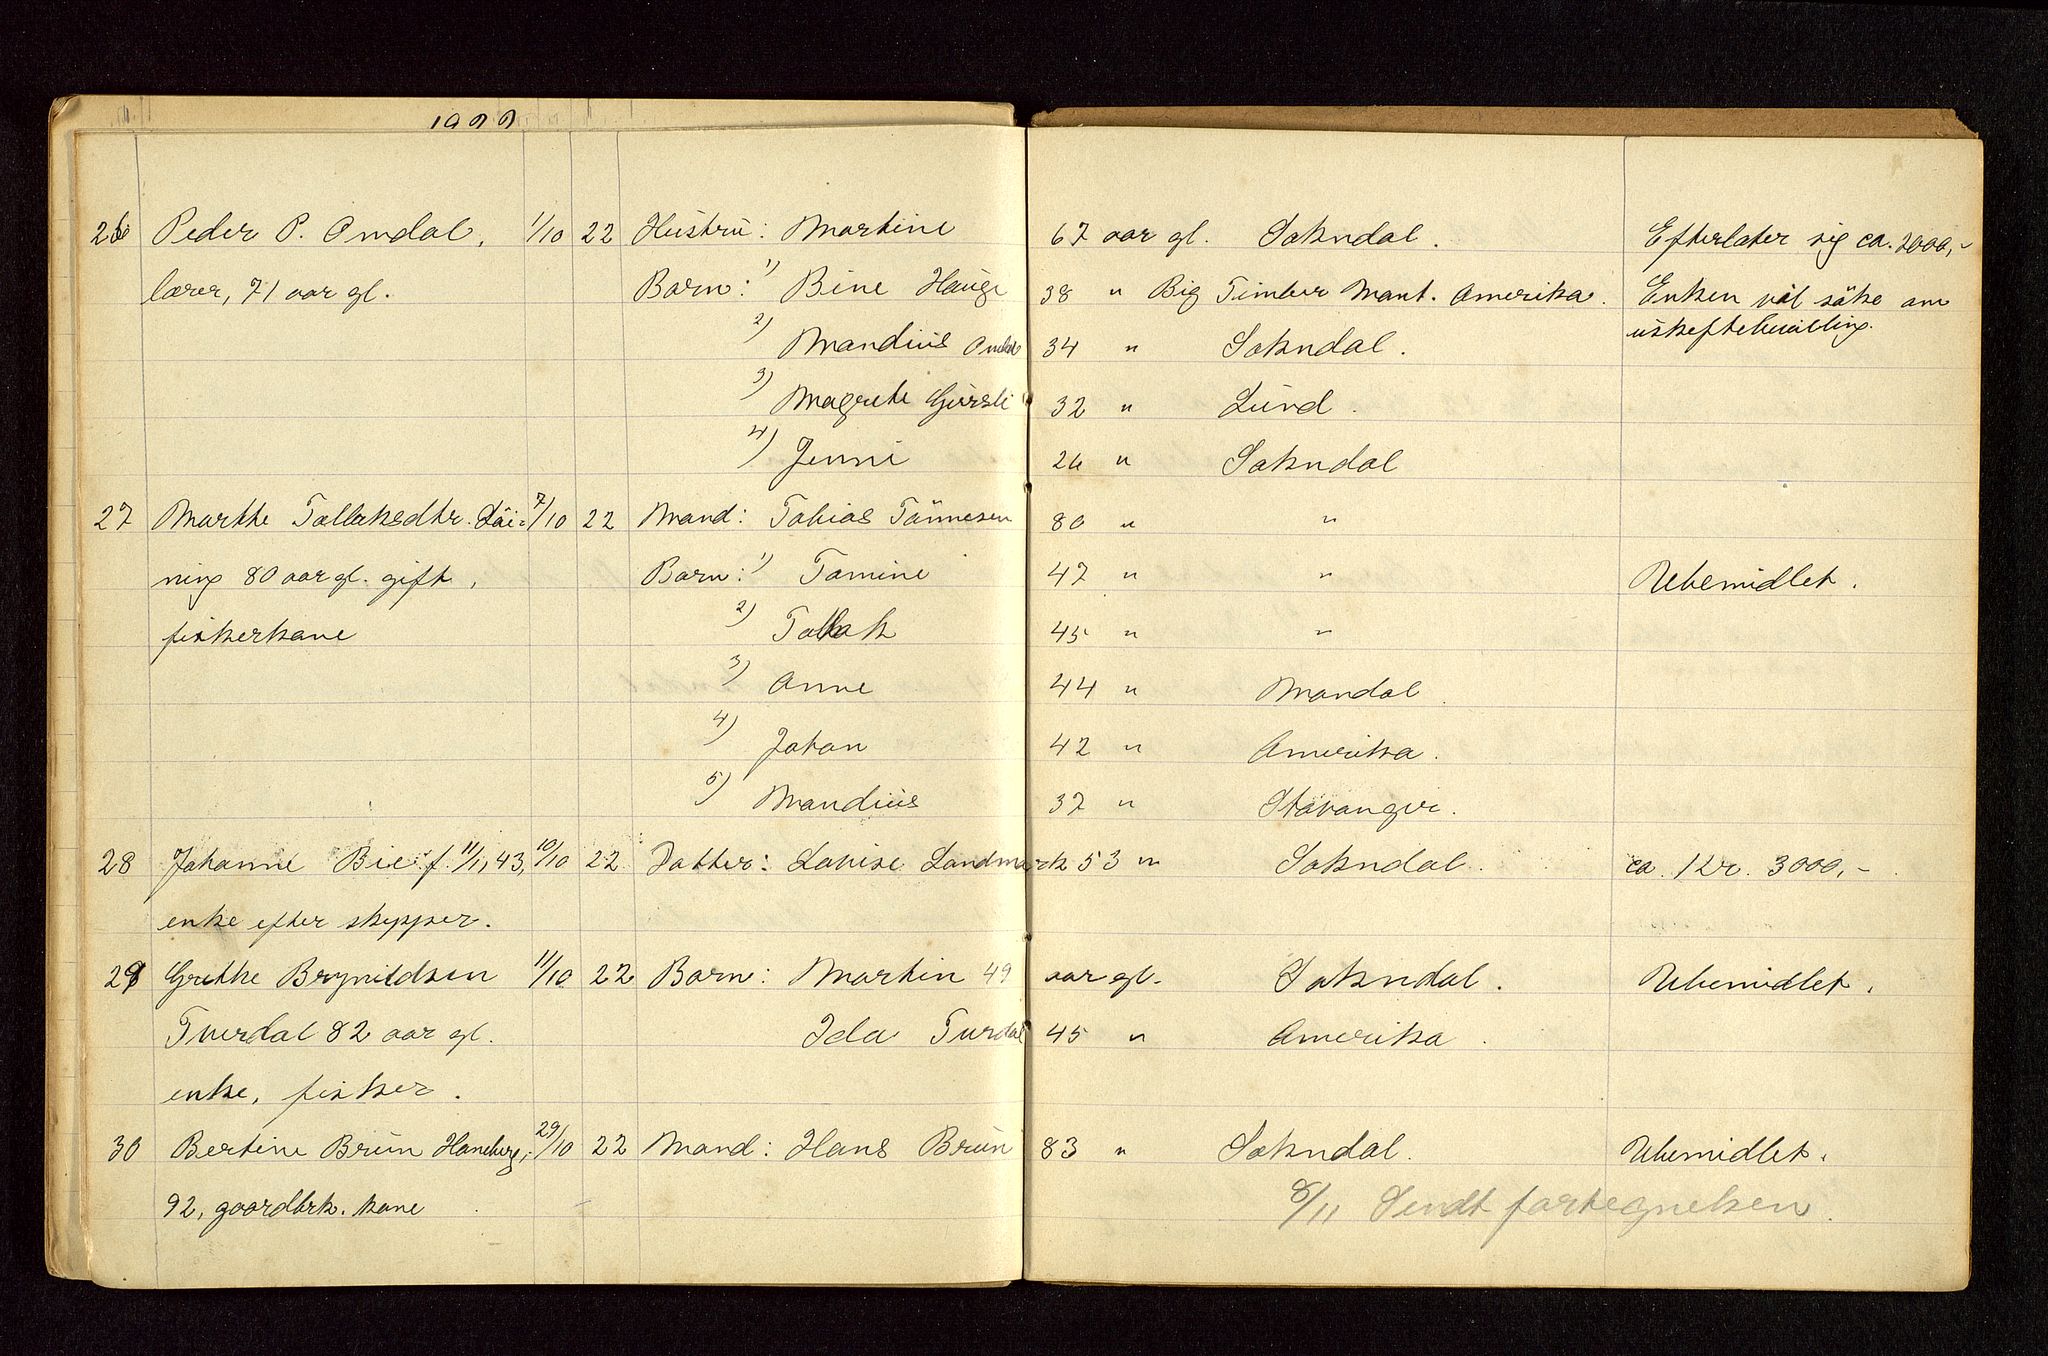 1922
26 Peder P. Omdal, 1/10 22 Hustru: Martine 67 aar gl. Sokndal. Efterlater sig ca. 2000,-
lærer, 71 aar gl. Barn: 1) Bine Hauge 38 " Big Timber Mont. Amerika. Enken vil söke om
2) Mandius Omdal 34 " Sokndal. uskiftebevilling.
3) Magrete Gursli 32 " Lund.
4) Jenni 26 " Sokndal
27 Marthe Tollaksdtr. 7/10 22 Mand: Tobias Tönnesen 80 " "
ning 80 aar gl. gift, Barn: 1) Tomine 47 " " Ubemidlet.
fiskerkone 2) Tollak 45 " "
3) Anne 44 " Mandal.
4) Johan 42 " Amerika.
5) Mandius 37 " Stavanger.
28 Johanne Bie f. 11/1, 43, 10/10 22 Datter: Lovise Landmark 53 " Sokndal. ca. Kr. 3000,-
enke efter skipper.
29 Grethe Brynildsen 11/10 22 Barn: Martin 49 aar gl. Sokndal. Ubemidlet.
Tuerdal 82 aar gl. Ida Turdal 45 " Amerika.
enke, fisker.
30 Bertine Brun Haneberg, 29/10 22 Mand: Hans Brun 83 " Sokndal. Ubemidlet.
92, gaardbrk. kone
8/11 Sendt fortegnelsen.